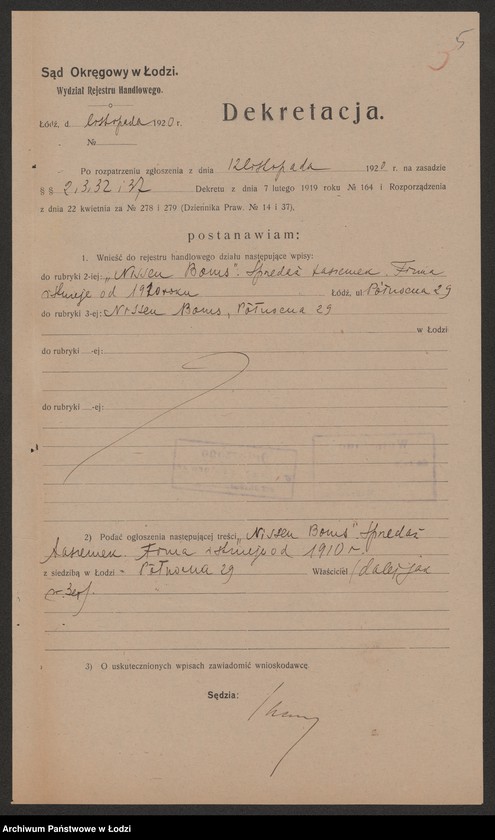 5
Sąd Okręgowy w Łodzi.
Wydział Rejestru Handlowego.
Dekretacja.
Łódź, d. listopada 1920 r.
№
Po rozpatrzeniu zgłoszenia z dnia 12 listopada 1920 r. na zasadzie
§ § 2, 3, 32 i 37 Dekretu z dnia 7 lutego 1919 roku № 164 i Rozporządzenia
z dnia 22 kwietnia za № 278 i 279 (Dziennika Praw. № 14 i 37),
postanawiam:
1. Wnieść do rejestru handlowego działu następujące wpisy:
do rubryki 2-iej: „Nissen Boms". Spredaż tasiemek. Firma
istnieje od 1910 roku Łódź, ul. Północna 29
do rubryki 3-ej: Nissen Boms, Północna 29
w Łodzi
do rubryki -ej:
do rubryki -ej:
2) Podać ogłoszenia następującej treści „Nissen Boms". Spredaż
tasiemek. Firma istnieje od 1910 r.
z siedzibą w Łodzi - Północna 29 Właściciel (dalej jak
3) O uskutecznionych wpisach zawiadomić wnioskodawcę.
Sędzia:
Archiwum Państwowe w Łodzi